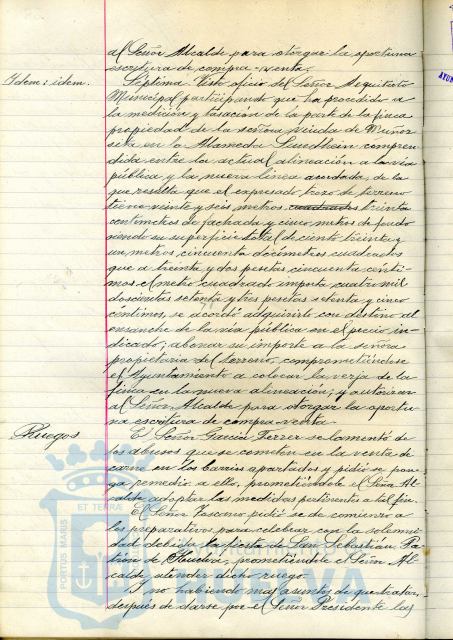 al Señor Alcalde para otorgar la oportuna
escritura de compra-venta.
Idem: idem. Séptima. Visto oficio del Señor Arquitecto
Municipal participando que ha procedido a
la medición y tasación de la parte de la finca
propiedad de la señora viuda de Muñoz
sita en la Alameda Sundheim compren
dida entre la actual alineación a la vía
pública y la nueva línea acordada, de la
que resulta que el expresado trozo de terreno
tiene veinte y seis metros cuadrados treinta
centímetros de fachada y cinco metros de fondo
siendo su superficie total de ciento treinta y
un metros cincuenta decímetros cuadrados
que a treinta y dos pesetas cincuenta cénti-
mos el metro cuadrado importa cuatro mil
doscientas setenta y tres pesetas setenta y cinco
céntimos, se acordó adquirirlo con destino al
ensanche de la vía pública en el precio in-
dicado; abonar su importe a la señora
propietaria del terreno, comprometiéndose
el Ayuntamiento a colocar la verja de la
finca en la nueva alineación; y autorizar
al Señor Alcalde para otorgar la oportu-
na escritura de compra-venta.
Ruegos El Señor García Ferrer se lamentó de
los abusos que se cometen en la venta de
carne en los barrios apartados y pidió se pon-
ga remedio a ello, prometiéndole el Señor Al-
calde adoptar las medidas pertinentes a tal fin.
El Señor Toscano pidió se de comienzo a
los preparativos para celebrar con la solemni-
dad debida la fiesta de San Sebastián Pa-
trón de Huelva, prometiéndole el Señor Al-
calde atender dicho ruego.
Y no habiendo más asuntos de que tratar,
después de darse por el Señor Presidente las
PORTUS MARIS ET TERRAE
Ayuntamiento
HUELVA